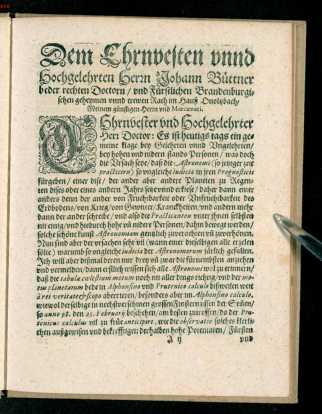 Dem Ehrnvesten unnd
Hochgelehrten Herrn Johann Büttner
beder rechten Doctorn / und Fürstlichen Brandenburgi-
schen geheymen unnd trewen Rath im Hauß Onoltzbach /
Meinem günstigen Herrn und
EHrnvester und Hochgelehrter
Herr Doctor: Es ist heutigs tags ein ge-
meine klage bey Gelehrten unnd Ungelehrten /
bey hohen und nidern stands Personen / was doch
die Ursach seye / daß die Astronomi (so jetziger zeit
practicirn) so ungleiche iudicia in jren Prognosticis
fürgeben / einer diß / der ander aber andere Planeten zu Regen-
ten dises oder eines andern Jahrs setze unnd erkiese / daher dann einer
anders denn der ander von Fruchtbarkeit oder Unfruchtbarkeit des
Erdbodens / von Krieg / von Gewitter / Kranckheiten / und andern mehr
dann der ander schreibe / und also die Practicanten unter jhnen selbsten
nit einig / und hiedurch hohe uñ nidere Personen / dahin bewegt werden /
solche schöne kunst Astronomiam gentzlich zuverachten uñ zuverhönen.
Nun sind aber der ursachen sehr vil (wann einer dieselbigen alle erzelen
solte) warumb so ungleiche iudicia der Astronomorum järlich gefallen.
Ich will aber dißmal deren nur drey uñ zwar die fürnembsten anziehen
und vermelden / dann erstlich wissen sich alle Astronomi wol zu erinnern /
daß die tabulæ cœlestium motuum noch nit aller dings richtig / und der mo-
tus planetarum beede in Alphonsino und Prutenico calculo bißweilen weit
à rei veritate & scopo aberriren / besonders aber im Alphonsino calculo,
wie wol der selbige in nechst verschinen grossen Finsternussen der Sonnen /
so anno 98. den 25. Februarij beschehen / am besten zutroffen / da der Pru-
tenicus calculus vil zu früe anticipirt, wie die observatio solches Herr-
lichen außgewisen und bekrefftigt: derhalben hohe Potentaten / Fürsten
A ij
und